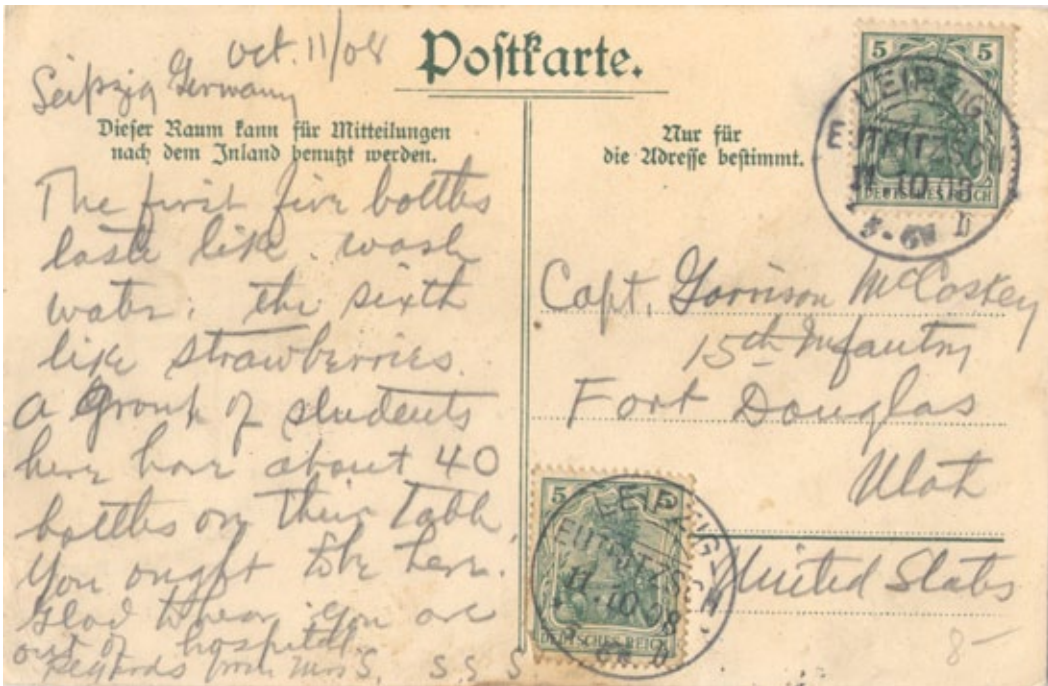 Oct. 11/08
Leipzig Germany
Postkarte.
Dieser Raum kann für Mitteilungen
nach dem Inland benutzt werden.
Nur für
die Adresse bestimmt.
The first five bottles
taste like wash
water: the sixth
like strawberries.
A group of students
here have about 40
bottles on their table.
You ought to be here.
Glad to hear you are
out of hospital.
Regards from Mrs S. S. S. S
Capt. Garrison McCaskey
15th Infantry
Fort Douglas
Utah
United States
8-
5 5
DEUTSCHES REICH
LEIPZIG-
EUTRITZSCH
11.10.08
5-6N b
5
DEUTSCHES REICH
LEIPZIG-
EUTRITZSCH
11.10.08
b